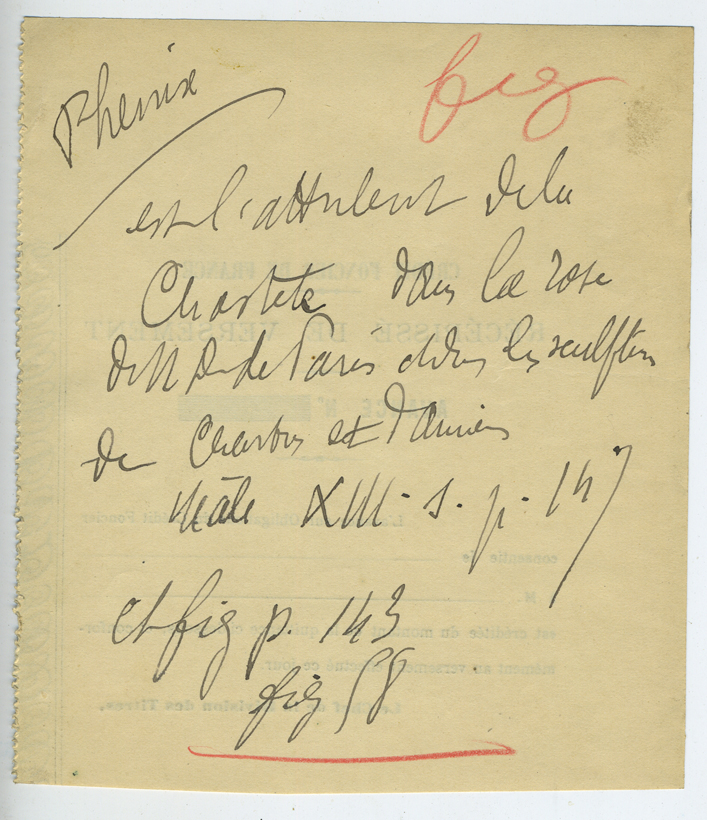 Phenix
fig
est l'attribut de la
Chasteté dans la rose
de N D de Paris et dans les sculptures
de Chartres et d'Amiens
Mâle XIII. s. p. 147
et fig p. 143
fig 58
CRÉDIT FONCIER DE FRANCE
RÉCÉPISSÉ DE VERSEMENT
consentie de
M
est créditée du montant
mément au versement effectué ce jour.
Le Chef de la Division des Titres.